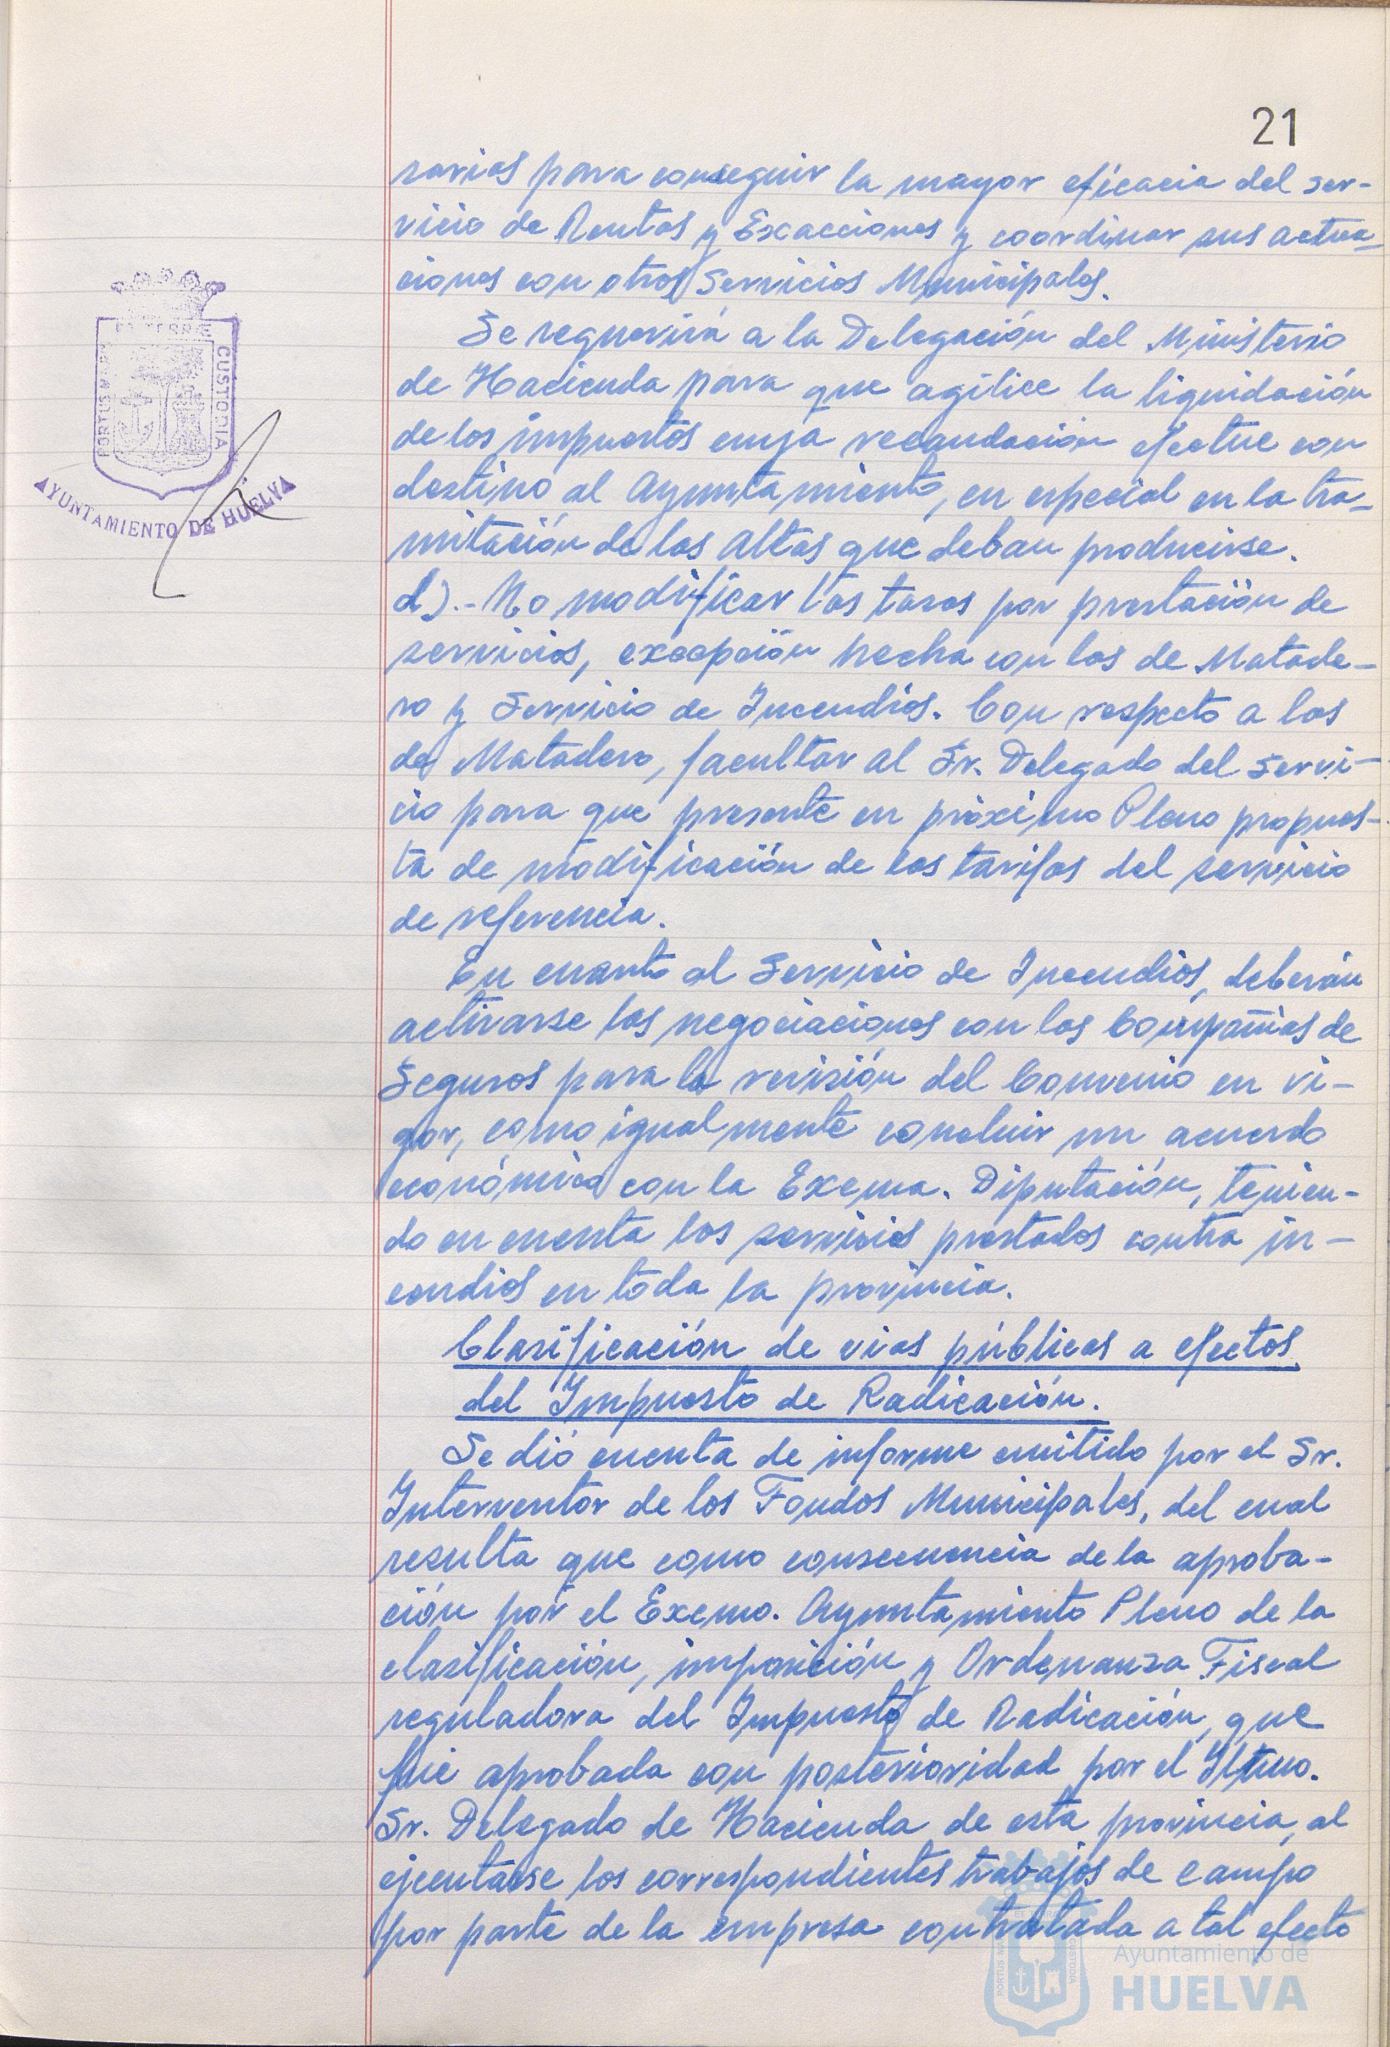 21
sarios para conseguir la mayor eficacia del ser-
vicio de Rentas y Exacciones y coordinar sus actua-
ciones con otros Servicios Municipales.
Se requerirá a la Delegación del Ministerio
de Hacienda para que agilice la liquidación
de los impuestos cuya recaudación efectue con
destino al Ayuntamiento, en especial en la tra-
mitación de las Altas que deban producirse.
d).- No modificar las tasas por prestación de
servicios, excepción hecha con las de Matade-
ro y Servicio de Incendios. Con respecto a las
de Matadero, facultar al Sr. Delegado del Servi-
cio para que presente en próximo Pleno propues-
ta de modificación de las tarifas del servicio
de referencia.
En cuanto al Servicio de Incendios, deberán
activarse las negociaciones con las Compañías de
Seguros para la revisión del Convenio en vi-
gor, como igualmente concluir un acuerdo
económico con la Excma. Diputación, tenien-
do en cuenta los servicios prestados contra in-
cendios en toda la provincia.
Clasificación de vias públicas a efectos
del Impuesto de Radicación.
Se dió cuenta de informe emitido por el Sr.
Interventor de los Fondos Municipales, del cual
resulta que como consecuencia de la aproba-
ción por el Excmo. Ayuntamiento Pleno de la
clasificación, imposición y Ordenanza Fiscal
reguladora del Impuesto de Radicación, que
fue aprobada con posterioridad por el Iltmo.
Sr. Delegado de Hacienda de esta provincia, al
ejecutarse los correspondientes trabajos de campo
por parte de la empresa contratada a tal efecto
PORTUS MARIS
ET TERRE
CUSTODIA
AYUNTAMIENTO DE HUELVA
Ayuntamiento de
HUELVA